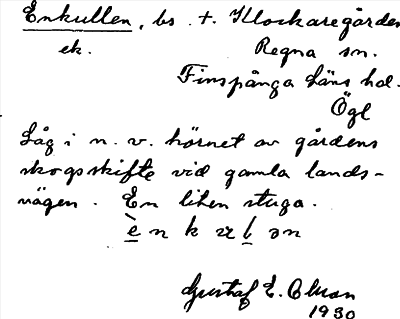 Enkullen, bs. t. Klockaregården
ek. Regna sn.
Finspånga läns hd.
Ögl
Låg i n. v. hörnet av gårdens
skogsskifte vid gamla lands-
vägen. En liten stuga.
Gustaf E.
1930